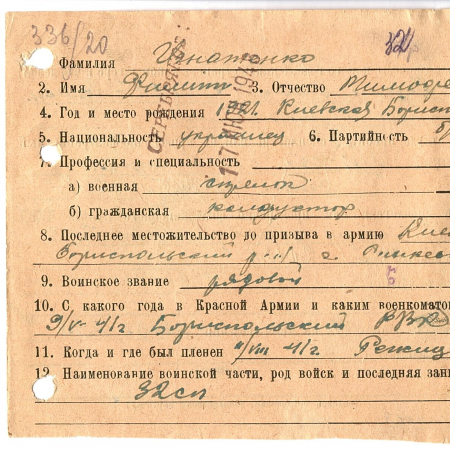 336/20
Фамилия Игнатенко
2. Имя Филипп 3. Отчество Тимофе
4. Год и место рождения 1921. Киевская Борисп
5. Национальность украинец 6. Партийность б
7. Профессия и специальность
а) военная стрелок
б) гражданская кондуктор
8. Последнее местожительство до призыва в армию Кие
Бориспольский
9. Воинское звание рядовой
10. С какого года в Красной Армии и каким военкомато
41г Бориспольский РВК
11. Когда и где был пленен VIII 41г.
12. Наименование воинской части, род войск и последняя зан
32сп